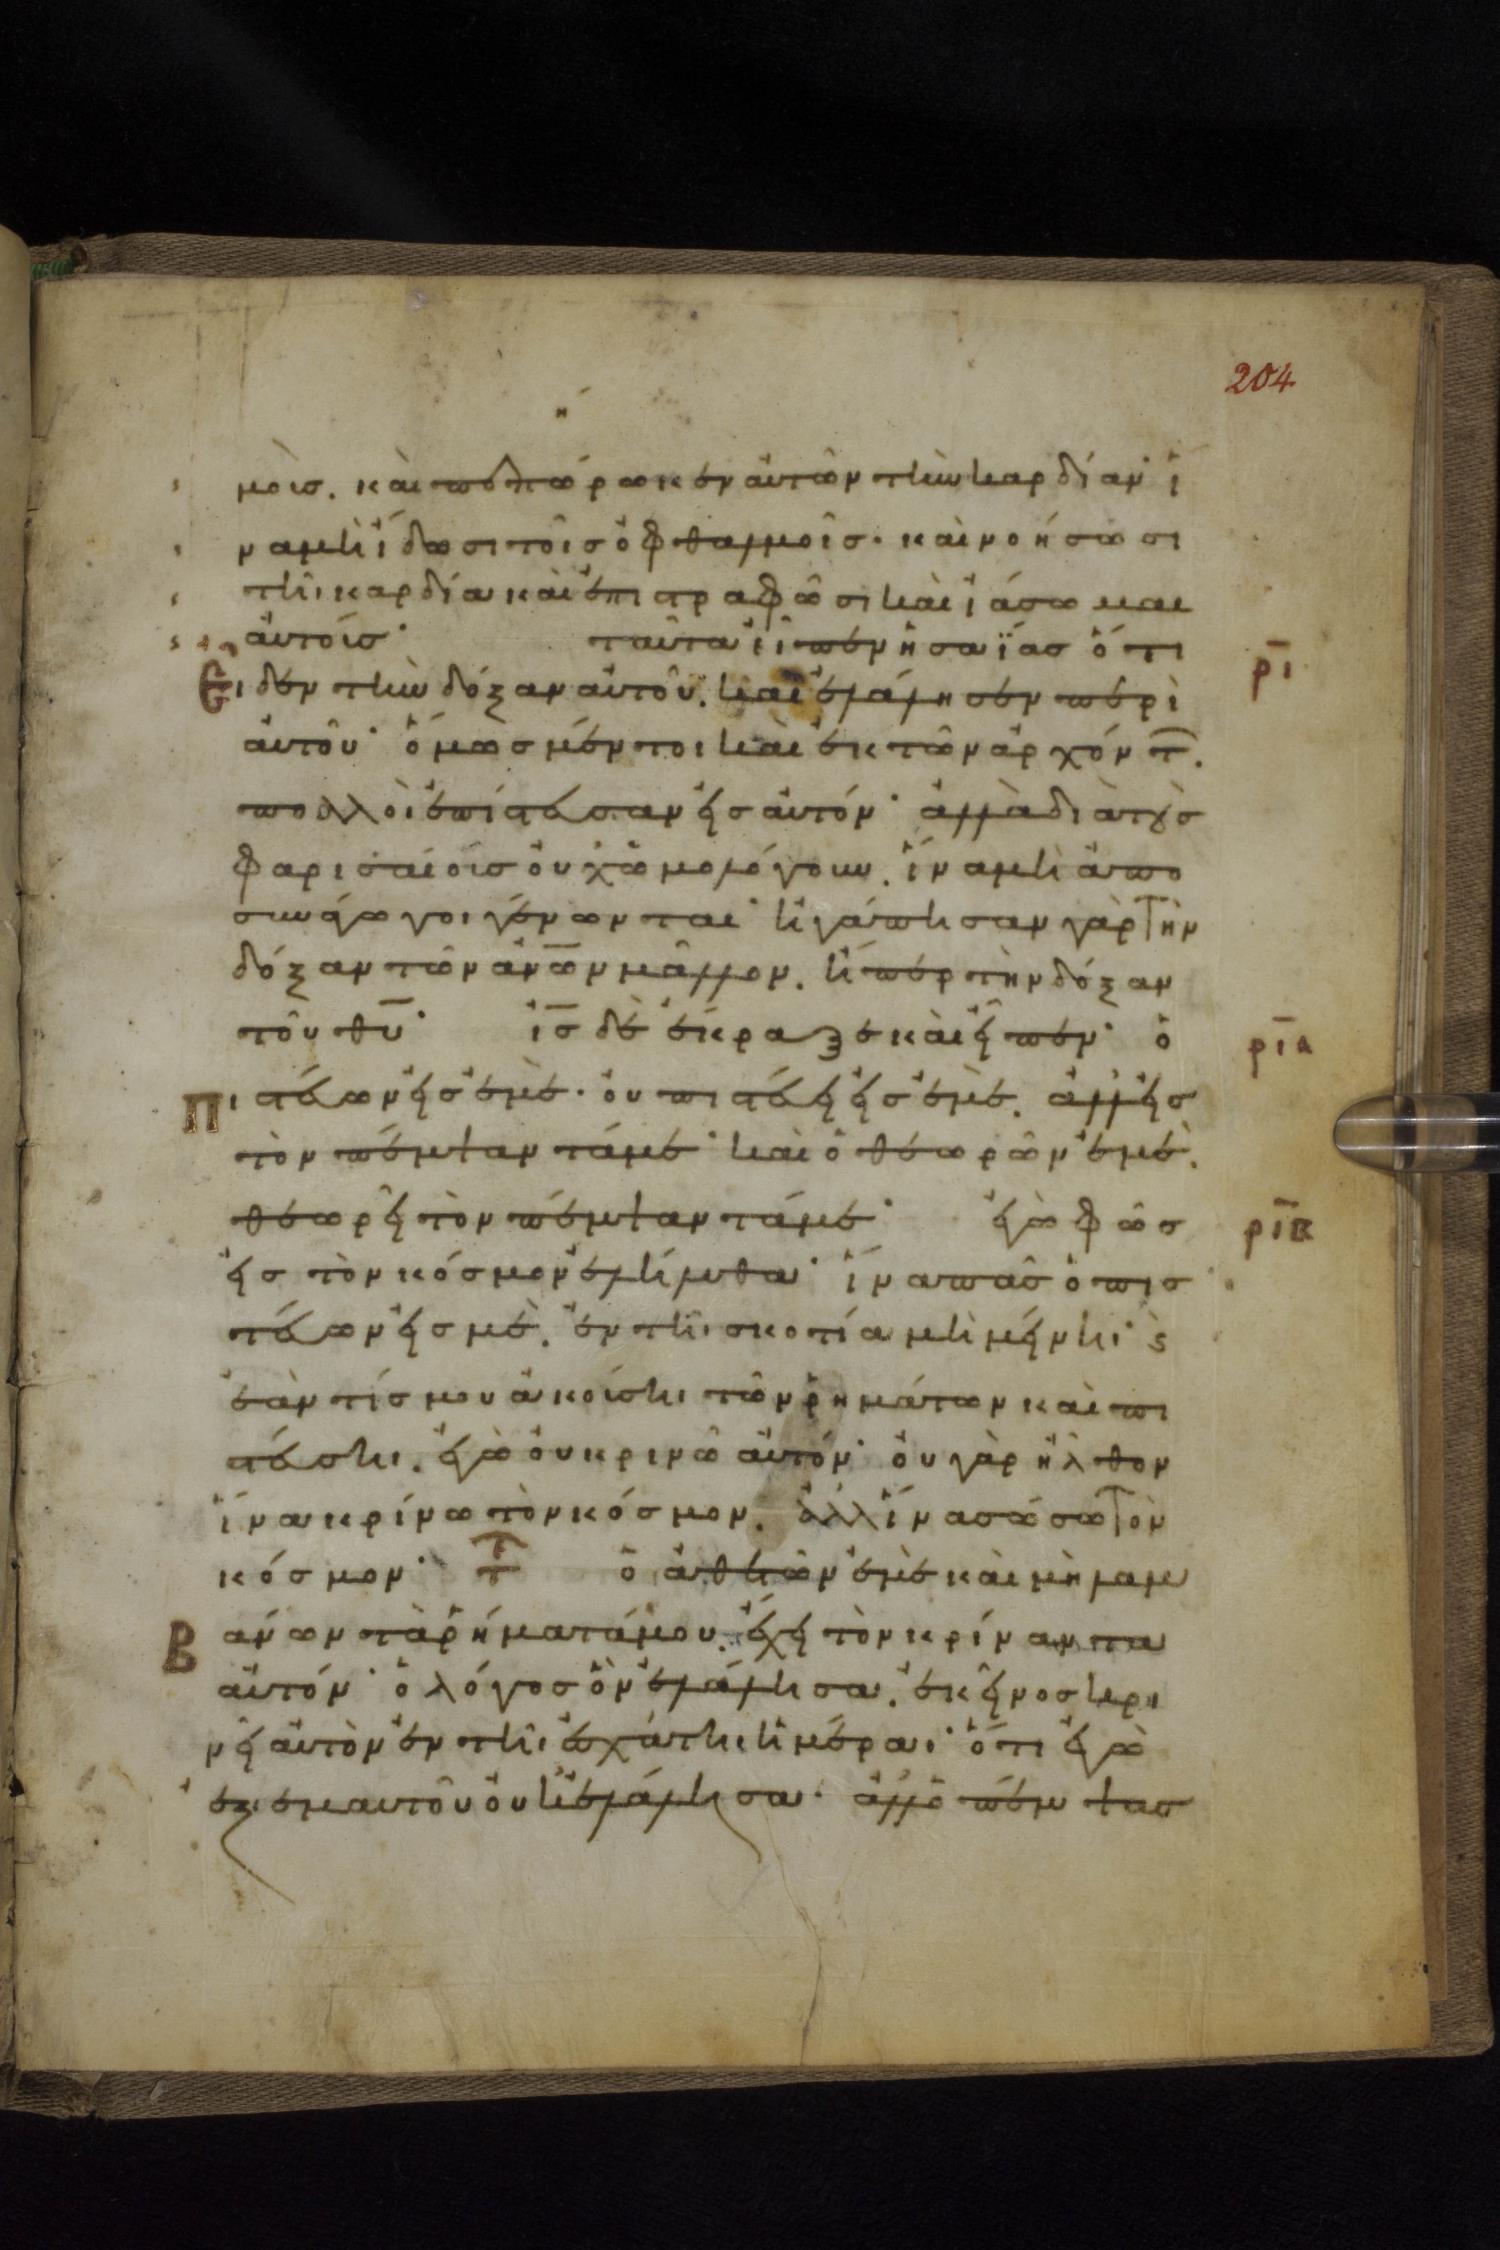 204
μοὶς. καὶ πεπώρωκεν αὐτῶν τὴν καρδίαν· ἵ
να μὴ ἴδωσι τοῖς ὀφθαλμοῖς· καὶ νοήσωσι
τῆι καρδία καὶ ἐπιστραφῶσι καὶ ἰάσωμαι
αὐτοίς· ταῦτα εἶπεν ἡσαΐας ὅτι ρῑ
Εἶδεν τὴν δόξαν αὐτοῦ. καὶ ἐλάλησεν περὶ
αὐτοῦ· ὅμως μέντοι καὶ ἐκ τῶν ἀρχόντ̅.
πολλοὶ ἐπίστευσαν εἰς αὐτόν· ἀλλὰ διὰ τοὺς
φαρισαίοις οὐχ ὡμολόγουν. ἵνα μὴ ἀπο
συνάγωγοι γένωνται· ἠγάπησαν γὰρ τὴν
δόξαν τῶν ἀνω̅ν μᾶλλον. ἤπερ τὴν δόξαν
τοῦ θυ̅· ις̅ δὲ ἔκραξε καὶ εἶπεν· ὁ ρῑα
Πιστεύων εἰς ἐμὲ. οὐ πιστεύει εἰς ἐμὲ. ἀλλ' εἰς
τὸν πέμψαντά με· καὶ ὁ θεωρῶν ἐμὲ.
θεωρεῖ τὸν πέμψαντά με· ἐγὼ φῶς ρῑβ
εἰς τὸν κόσμον ἐλήλυθα· ἵνα πᾶς ὁ πισ
τεύων εἰς μὲ. ἐν τῆι σκοτία μὴ μείνηι· ϗ
ἐὰν τίς μου ἀκούσηι τῶν ῥημάτων καὶ πι
στεύσηι. ἐγὼ οὐ κρινῶ αὐτόν· οὐ γὰρ ἦλθον
ἵνα κρίνω τὸν κόσμον. ἀλλ' ἵνα σώσω τὸν
κόσμον· τε ὁ ἀθετῶν ἐμὲ καὶ μὴ λαμ
Βάνων τὰ ῥήματά μου. ἔχει τὸν κρίναντα
αὐτόν· ὁ λόγος ὃν ἐλάλησα. ἐκεῖνος κρι
νεῖ αὐτὸν ἐν τῆι ἐσχάτηι ἡμέραι· ὅτι ἐγὼ
ἐξ ἐμαυτοῦ οὐκ ἐλάλησα· ἀλλ' ὁ πέμψας